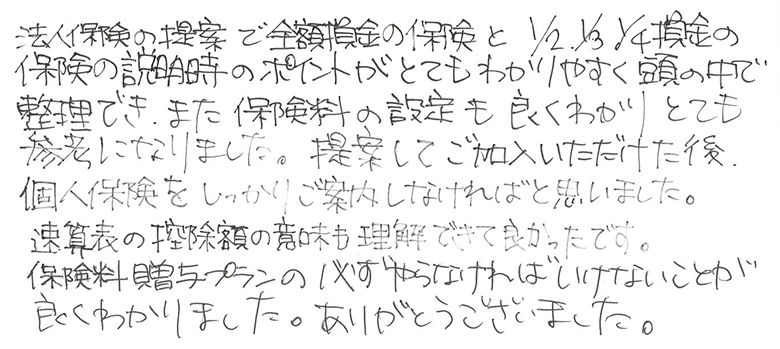 法人保険の提案で全額損金の保険と1/2.1/3.1/4損金の
保険の説明時のポイントがとてもわかりやすく頭の中で
整理でき.また保険料の設定も良くわかりとても
参考になりました。提案してご加入いただけた後.
個人保険をしっかりご案内しなければと思いました。
速算表の控除額の意味も理解できて良かったです。
保険料贈与プランの必ずやらなければいけないことが
良くわかりました。ありがとうございました。